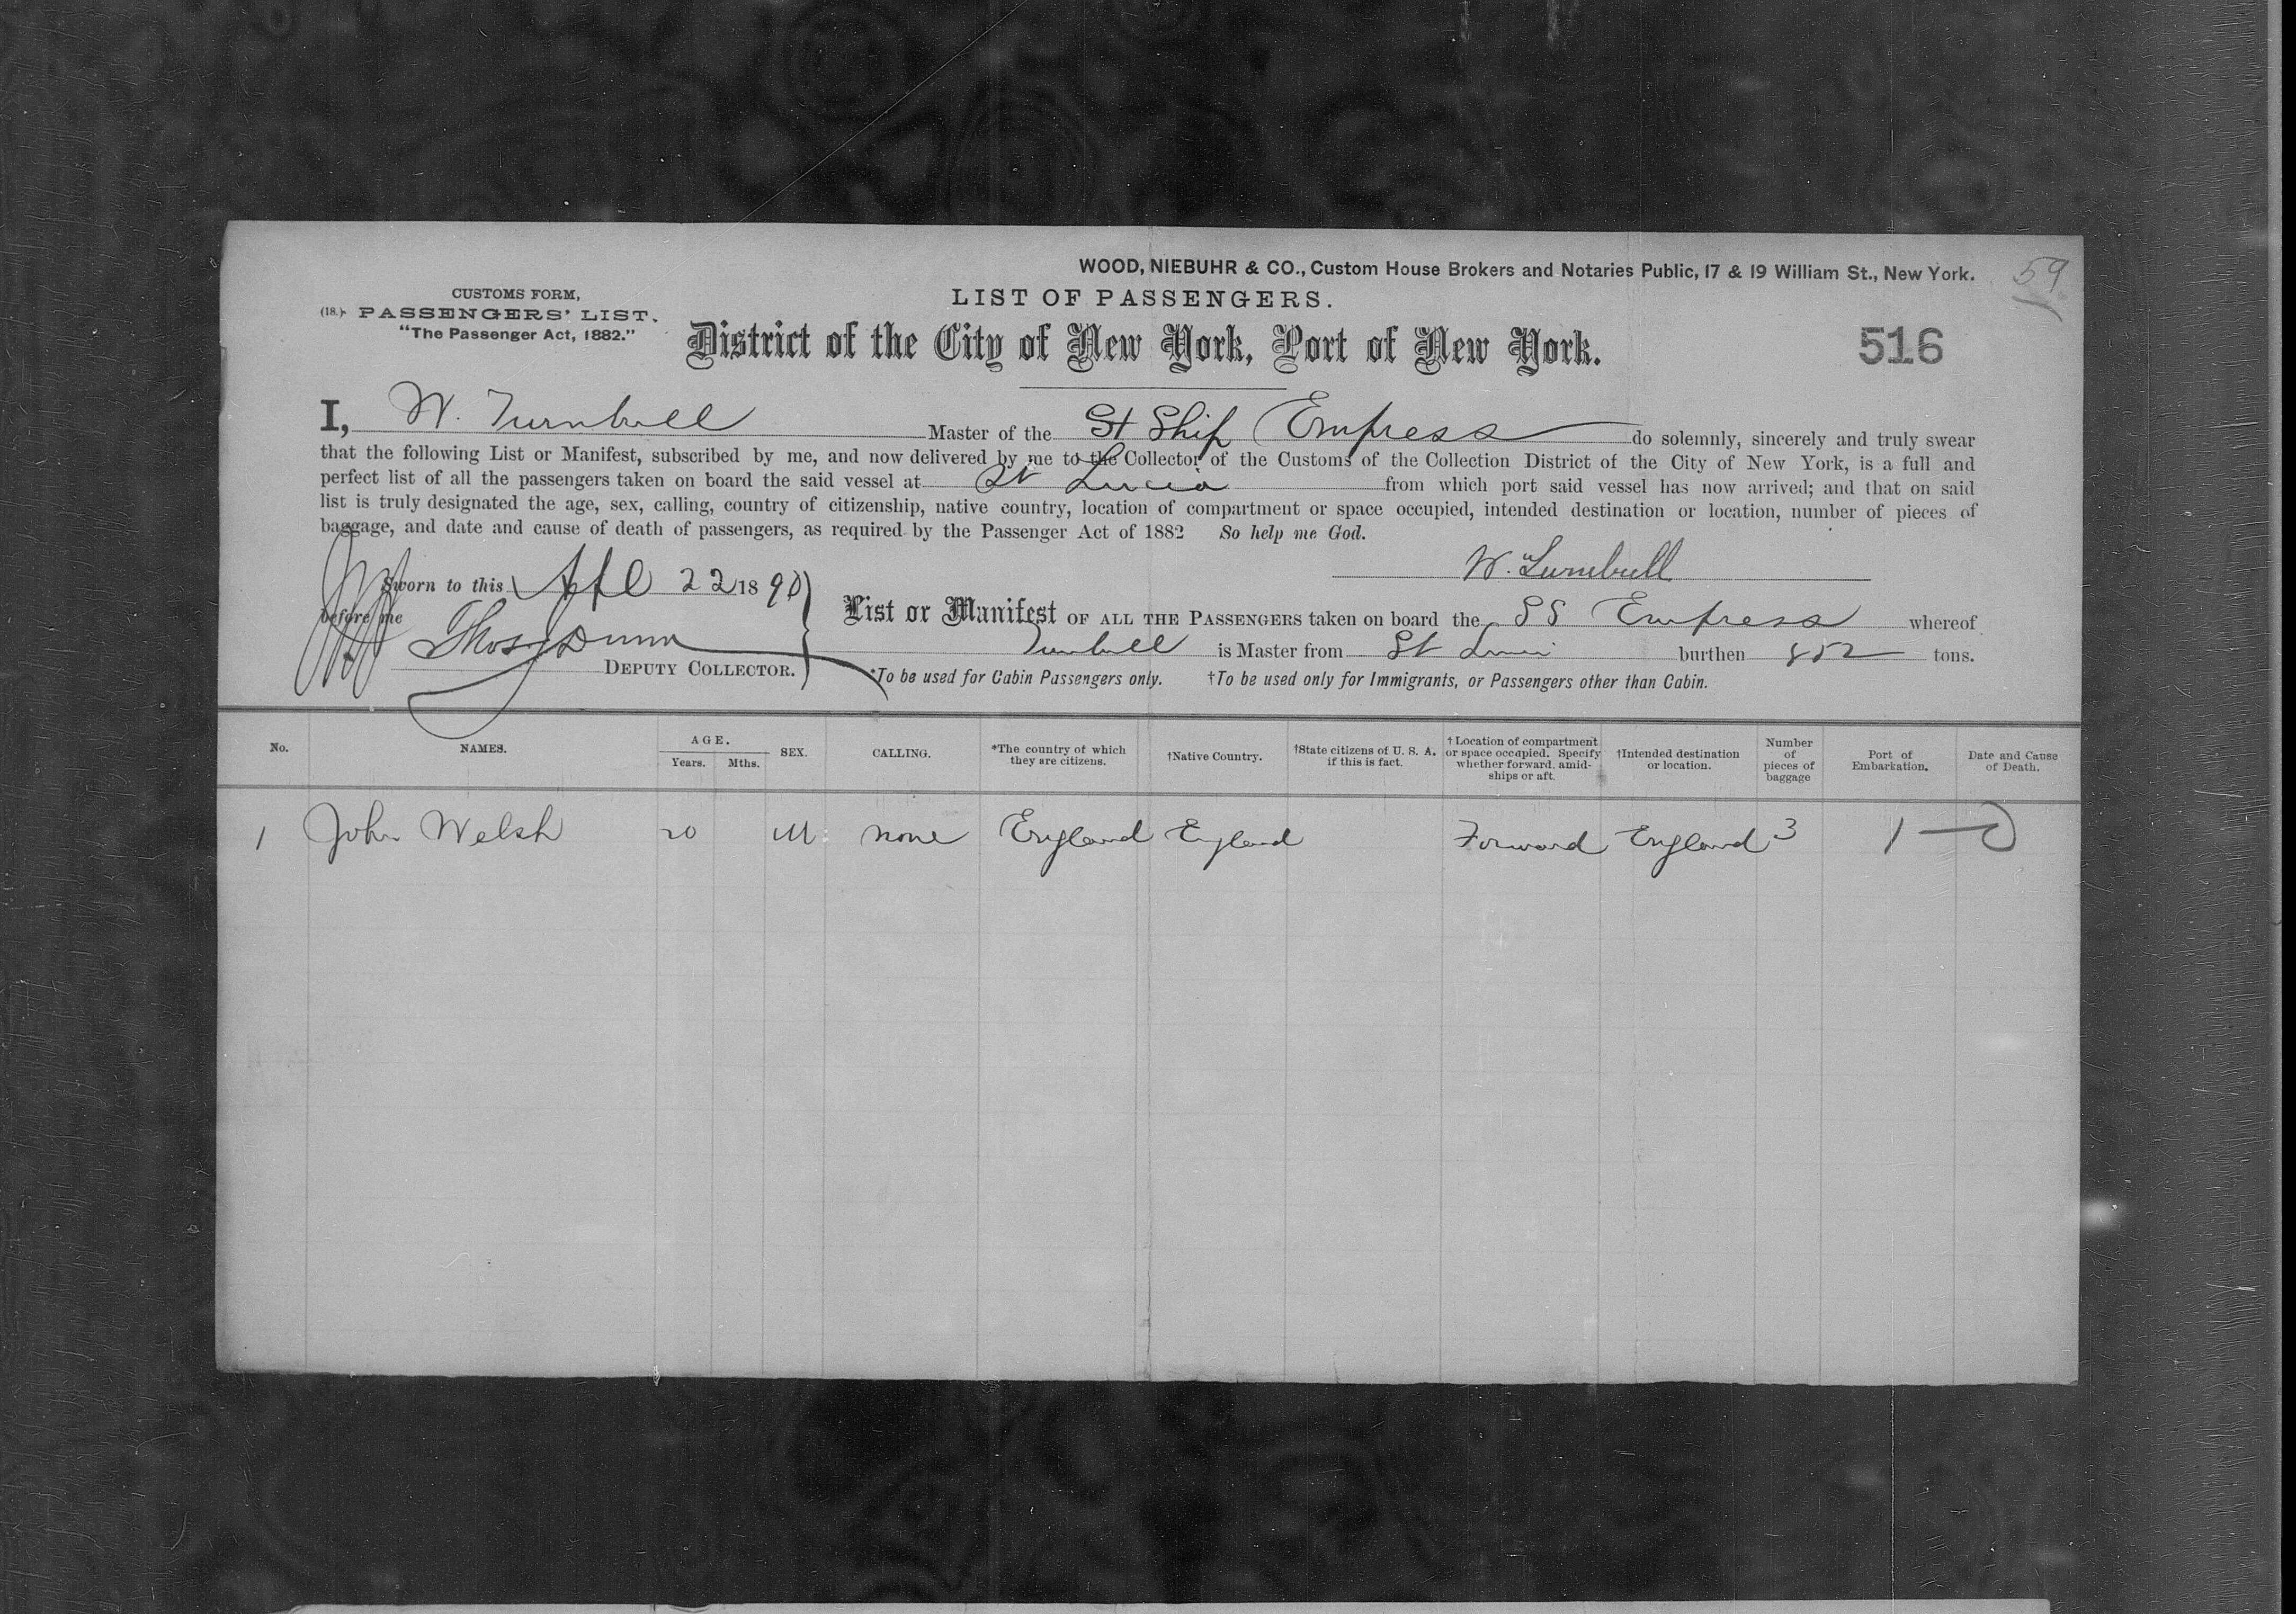 WOOD, NIEBUHR & CO., Custom House Brokers and Notaries Public, 17 & 19 William St., New York.
59
CUSTOMS FORM,
(18.) PASSENGERS' LIST.
"The Passenger Act, 1882."
LIST OF PASSENGERS.
District of the City of New York, Port of New York.
516
I, W. Turnbull Master of the St Ship Empress do solemnly, sincerely and truly swear
that the following List or Manifest, subscribed by me, and now delivered by me to the Collector of the Customs of the Collection District of the City of New York, is a full and
perfect list of all the passengers taken on board the said vessel at St Lucia from which port said vessel has now arrived; and that on said
list is truly designated the age, sex, calling, country of citizenship, native country, location of compartment or space occupied, intended destination or location, number of pieces of
baggage, and date and cause of death of passengers, as required by the Passenger Act of 1882 So help me God.
W. Turnbull
Sworn to this Apl 22 1890
before me Thos J Dunn
DEPUTY COLLECTOR.
List or Manifest OF ALL THE PASSENGERS taken on board the SS Empress whereof
Turnbull is Master from St Lucia burthen 852 tons.
*To be used for Cabin Passengers only. †To be used only for Immigrants, or Passengers other than Cabin.
No. NAMES. AGE. Years. Mths. SEX. CALLING. *The country of which they are citizens. †Native Country. †State citizens of U. S. A. if this is fact. †Location of compartment or space occupied. Specify whether forward, amidships or aft. †Intended destination or location. Number of pieces of baggage Port of Embarkation. Date and Cause of Death.
1 John Welsh 20 M none England England Forward England 3 1